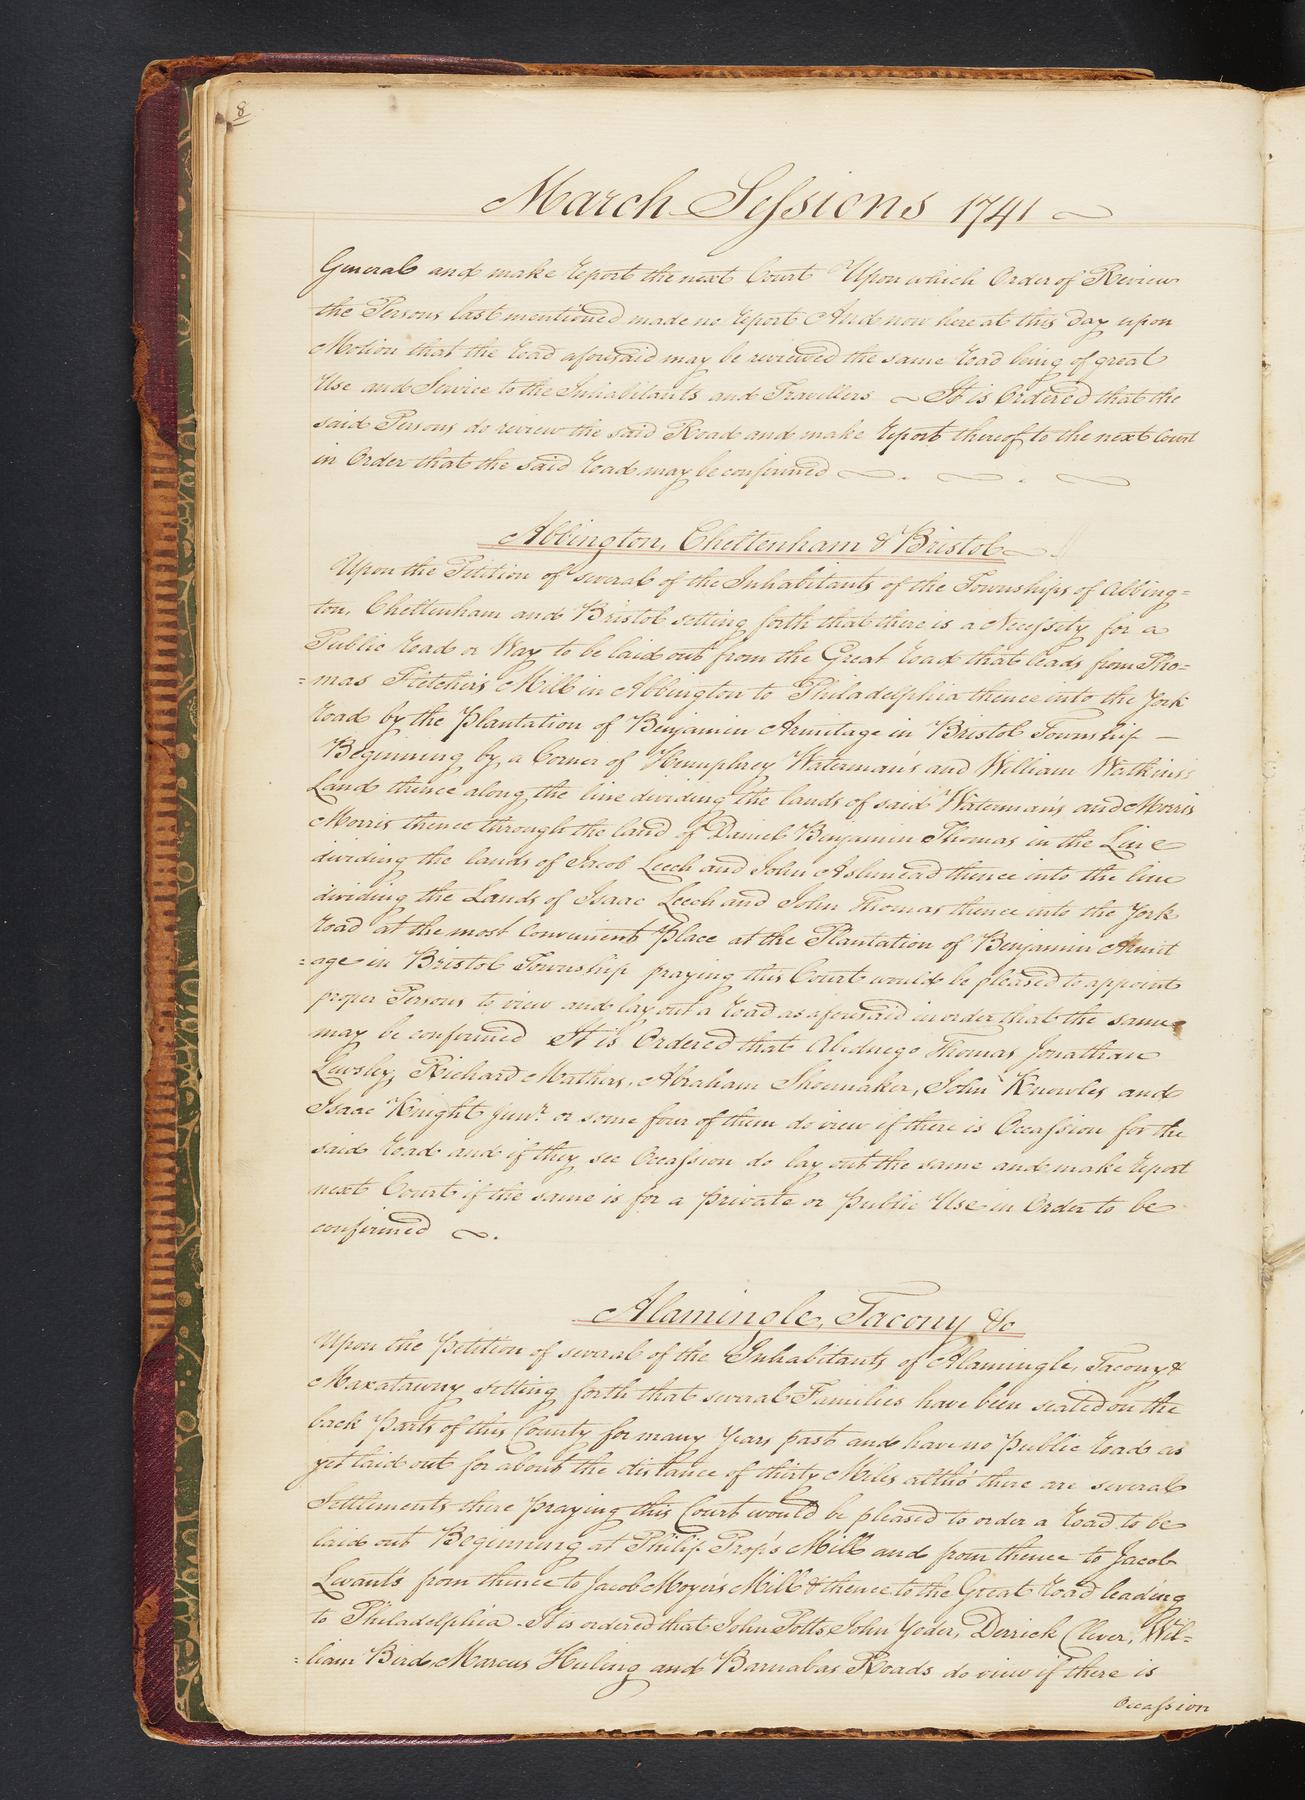 8
March Sessions 1741
General and make report the next Court Upon which Order of Review
the Persons last mentioned made no report And now here at this day upon
Motion that the road aforesaid may be reviewed the same road being of great
Use and Service to the Inhabitants and Travellers It is Ordered that the
said Persons do review the said Road and make report thereof to the next Court
in Order that the said road may be confirmed
Abbington, Cheltenham & Bristol
Upon the Petition of several of the Inhabitants of the Townships of Abbing=
ton, Cheltenham and Bristol setting forth that there is a Necessity for a
Public road or Way to be laid out from the Great road that leads from Tho=
=mas Fletcher's Mill in Abbington to Philadelphia thence into the York
road by the Plantation of Benjamin Armitage in Bristol Township —
Beginning by a Corner of Humphrey Waterman's and William Watkins's
Land thence along the line dividing the lands of said Waterman's and Morris
Morris thence through the land of Daniel Benjamin Thomas in the Line
dividing the lands of Jacob Leech and John Ashmead thence into the line
dividing the Lands of Isaac Leech and John Thomas thence into the York
road at the most Convenient Place at the Plantation of Benjamin Armit
=age in Bristol Township praying this Court would be pleased to appoint
proper Persons to view and lay out a road as aforesaid in order that the same
may be confirmed It is Ordered that Abednego Thomas Jonathan
Livsley, Richard Mathers, Abraham Shoemaker, John Knowles and
Isaac Knight junr. or some four of them do view if there is Occassion for the
said road and if they see Occassion do lay out the same and make report
next Court if the same is for a private or public Use in Order to be
confirmed
Alamingle, Tacony &c
Upon the petition of several of the Inhabitants of Alamingle, Tacony &
Maxatawny setting forth that several Families have been seated on the
back parts of this County for many years past and have no public road as
yet laid out for about the distance of thirty Miles altho' there are several
Settlements there praying this Court would be pleased to order a road to be
laid out Beginning at Philip Prop's Mill and from thence to Jacob
Levant's from thence to Jacob Moyer's Mill & thence to the Great road leading
to Philadelphia - It is ordered that John Potts John Yoder, Derrick Clever, Wil=
=liam Bird, Marcus Huling and Barnabas Roads do view if there is
Occassion